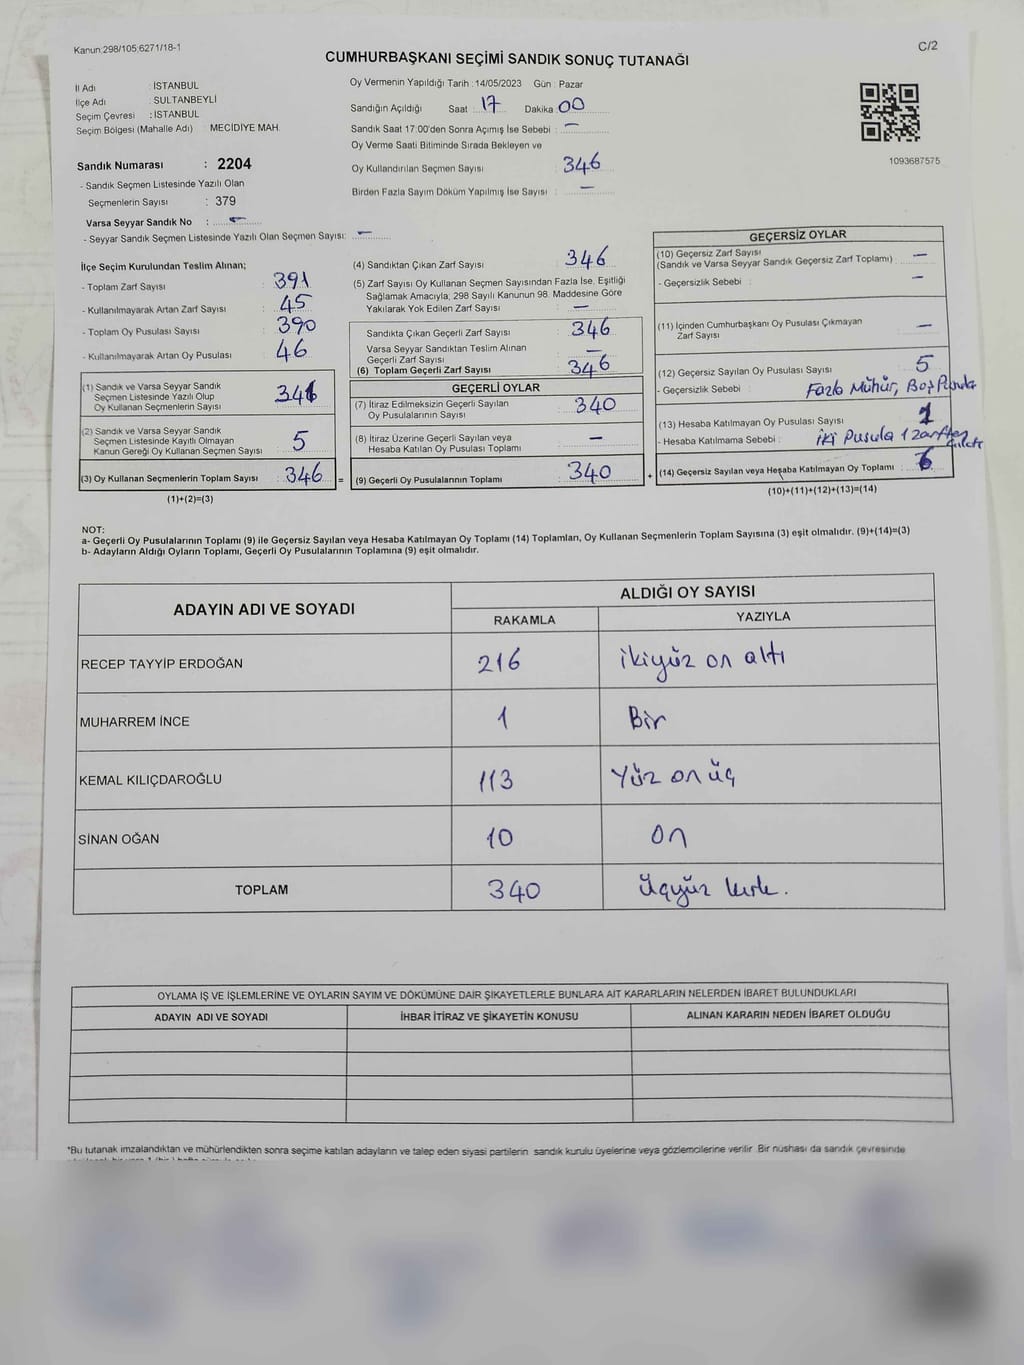 Kanun:298/105;6271/18-1
C/2
CUMHURBAŞKANI SEÇİMİ SANDIK SONUÇ TUTANAĞI
İl Adı : İSTANBUL
İlçe Adı : SULTANBEYLİ
Seçim Çevresi : İSTANBUL
Seçim Bölgesi (Mahalle Adı) : MECİDİYE MAH.
Sandık Numarası : 2204
- Sandık Seçmen Listesinde Yazılı Olan
Seçmenlerin Sayısı : 379
Varsa Seyyar Sandık No : –
- Seyyar Sandık Seçmen Listesinde Yazılı Olan Seçmen Sayısı: –
Oy Vermenin Yapıldığı Tarih : 14/05/2023 Gün : Pazar
Sandığın Açıldığı Saat : 17 Dakika : 00
Sandık Saat 17:00'den Sonra Açımış İse Sebebi : –
Oy Verme Saati Bitiminde Sırada Bekleyen ve
Oy Kullandırılan Seçmen Sayısı : 346
Birden Fazla Sayım Döküm Yapılmış İse Sayısı : –
1093687575
İlçe Seçim Kurulundan Teslim Alınan;
- Toplam Zarf Sayısı : 391
- Kullanılmayarak Artan Zarf Sayısı : 45
- Toplam Oy Pusulası Sayısı : 390
- Kullanılmayarak Artan Oy Pusulası : 46
(1) Sandık ve Varsa Seyyar Sandık
Seçmen Listesinde Yazılı Olup
Oy Kullanan Seçmenlerin Sayısı : 341
(2) Sandık ve Varsa Seyyar Sandık
Seçmen Listesinde Kayıtlı Olmayan
Kanun Gereği Oy Kullanan Seçmen Sayısı : 5
(3) Oy Kullanan Seçmenlerin Toplam Sayısı : 346 =
(1)+(2)=(3)
(4) Sandıktan Çıkan Zarf Sayısı : 346
(5) Zarf Sayısı Oy Kullanan Seçmen Sayısından Fazla İse, Eşitliği
Sağlamak Amacıyla; 298 Sayılı Kanunun 98. Maddesine Göre
Yakılarak Yok Edilen Zarf Sayısı : –
Sandıkta Çıkan Geçerli Zarf Sayısı : 346
Varsa Seyyar Sandıktan Teslim Alınan
Geçerli Zarf Sayısı : –
(6) Toplam Geçerli Zarf Sayısı : 346
GEÇERLİ OYLAR
(7) İtiraz Edilmeksizin Geçerli Sayılan
Oy Pusulalarının Sayısı : 340
(8) İtiraz Üzerine Geçerli Sayılan veya
Hesaba Katılan Oy Pusulası Toplamı : –
(9) Geçerli Oy Pusulalarının Toplamı : 340 +
GEÇERSİZ OYLAR
(10) Geçersiz Zarf Sayısı
(Sandık ve Varsa Seyyar Sandık Geçersiz Zarf Toplamı) : –
- Geçersizlik Sebebi : –
(11) İçinden Cumhurbaşkanı Oy Pusulası Çıkmayan
Zarf Sayısı : –
(12) Geçersiz Sayılan Oy Pusulası Sayısı : 5
- Geçersizlik Sebebi : Fazla Mühür, Boş Pusula
(13) Hesaba Katılmayan Oy Pusulası Sayısı : 1
- Hesaba Katılmama Sebebi : İki Pusula 1 Zarftan
(14) Geçersiz Sayılan veya Hesaba Katılmayan Oy Toplamı : 6
(10)+(11)+(12)+(13)=(14)
NOT:
a- Geçerli Oy Pusulalarının Toplamı (9) ile Geçersiz Sayılan veya Hesaba Katılmayan Oy Toplamı (14) Toplamları, Oy Kullanan Seçmenlerin Toplam Sayısına (3) eşit olmalıdır. (9)+(14)=(3)
b- Adayların Aldığı Oyların Toplamı, Geçerli Oy Pusulalarının Toplamına (9) eşit olmalıdır.
ADAYIN ADI VE SOYADI
ALDIĞI OY SAYISI
RAKAMLA YAZIYLA
RECEP TAYYİP ERDOĞAN 216 ikiyüz on altı
MUHARREM İNCE 1 Bir
KEMAL KILIÇDAROĞLU 113 Yüz on üç
SİNAN OĞAN 10 On
TOPLAM 340 Üçyüz kırk.
OYLAMA İŞ VE İŞLEMLERİNE VE OYLARIN SAYIM VE DÖKÜMÜNE DAİR ŞİKAYETLERLE BUNLARA AİT KARARLARIN NELERDEN İBARET BULUNDUKLARI
ADAYIN ADI VE SOYADI İHBAR İTİRAZ VE ŞİKAYETİN KONUSU ALINAN KARARIN NEDEN İBARET OLDUĞU
*Bu tutanak imzalandıktan ve mühürlendikten sonra seçime katılan adayların ve talep eden siyasi partilerin sandık kurulu üyelerine veya gözlemcilerine verilir. Bir nüshası da sandık çevresinde